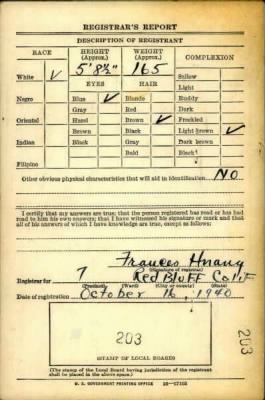 REGISTRAR'S REPORT
DESCRIPTION OF REGISTRANT
RACE HEIGHT (Approx.) WEIGHT (Approx.) COMPLEXION
5' 8½" 165
White ✓ Sallow
EYES HAIR Light
Negro Blue ✓ Blonde Ruddy
Gray Red Dark
Oriental Hazel Brown ✓ Freckled
Brown Black Light brown ✓
Indian Black Gray Dark brown
Bald Black
Filipino
Other obvious physical characteristics that will aid in identification NO
I certify that my answers are true; that the person registered has read or has had
read to him his own answers; that I have witnessed his signature or mark and that
all of his answers of which I have knowledge are true, except as follows:
Frances
(Signature of registrar)
Registrar for 7 Red Bluff Calif
(Precinct) (Ward) (City or county) (State)
Date of registration October 16, 1940
203
203
STAMP OF LOCAL BOARD
(The stamp of the Local Board having jurisdiction of the registrant
shall be placed in the above space.)
U. S. GOVERNMENT PRINTING OFFICE 16—17105